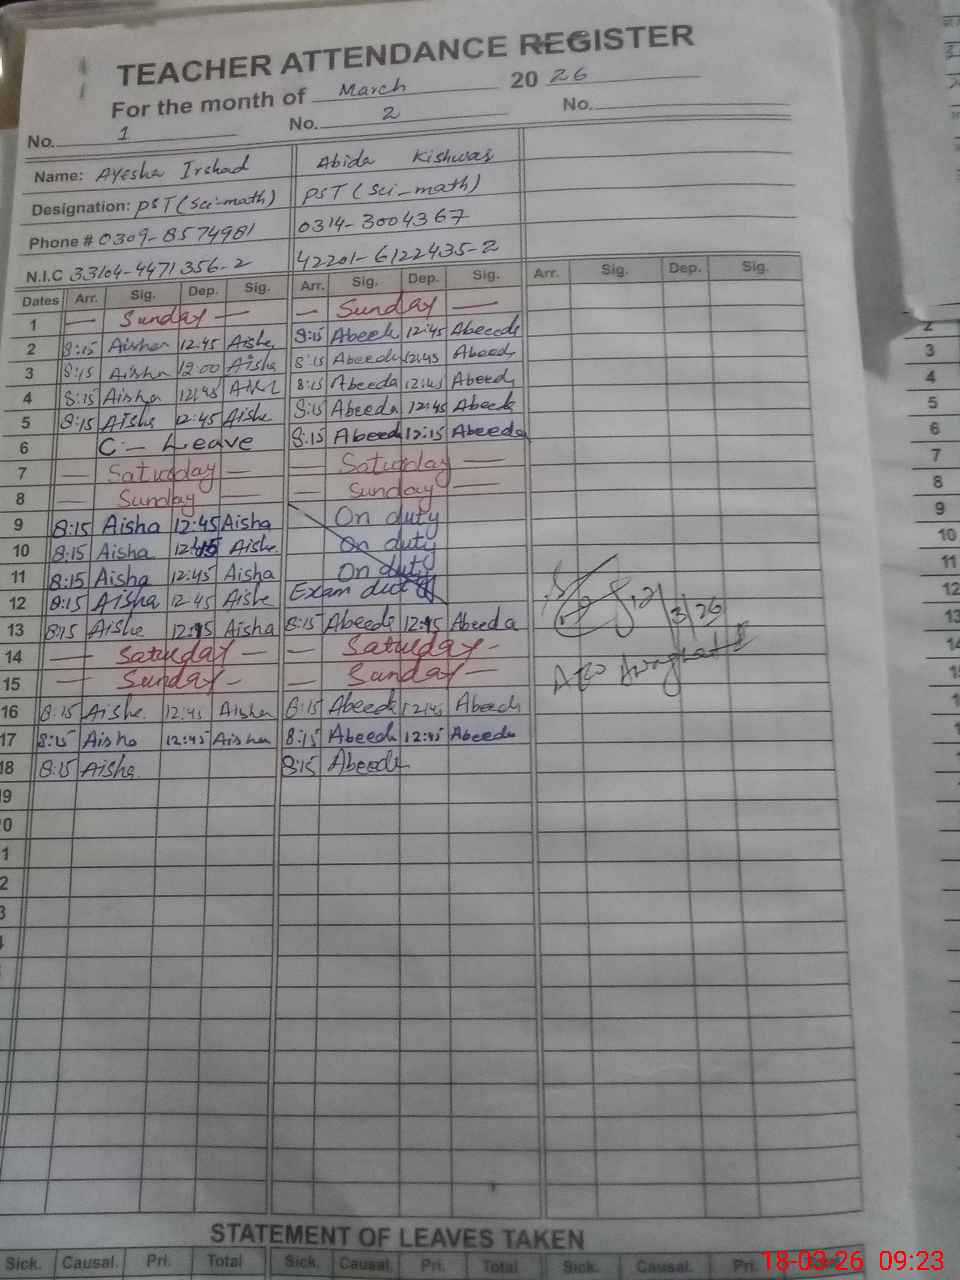 TEACHER ATTENDANCE REGISTER
For the month of March 2026
No. 1 No. 2 No.
Name: Ayesha Irshad Abida Kishwar
Designation: PST (Sci-math) PST (Sci-math)
Phone # 0309-8574981 0314-3004367
N.I.C 33104-4471356-2 42201-6122435-2
Dates Arr. Sig. Dep. Sig. Arr. Sig. Dep. Sig. Arr. Sig. Dep. Sig.
1 — Sunday — — Sunday —
2 8:15 Aisha 12:45 Aishe 8:15 Abeeda 12:45 Abeeda
3 8:15 Aisha 12:00 Aisha 8:15 Abeeda 12:45 Abeeda
4 8:15 Aisha 12:45 8:15 Abeeda 12:45 Abeeda
5 8:15 Aishe 12:45 Aishe 8:15 Abeeda 12:45 Abeeda
6 C — Leave 8:15 Abeeda 12:15 Abeeda
7 — Saturday — — Saturday —
8 — Sunday — — Sunday —
9 8:15 Aisha 12:45 Aisha On duty
10 8:15 Aisha 12:45 Aishe On duty
11 8:15 Aisha 12:45 Aisha On duty
12 8:15 Aisha 12:45 Aishe Exam duty
13 8:15 Aishe 12:15 Aisha 8:15 Abeeda 12:15 Abeeda
14 — Saturday — — Saturday -
15 — Sunday - — Sunday —
16 8:15 Aishe 12:45 Aisha 8:15 Abeeda 12:45 Abeeda
17 8:15 Aisha 12:45 Aisha 8:15 Abeeda 12:45 Abeeda
18 8:15 Aisha 8:15 Abeeda
12/3/26
9
0
1
2
3
STATEMENT OF LEAVES TAKEN
Sick. Causal. Pri. Total Sick. Causal. Pri. Total Sick. Causal. Pri.
2
3
4
5
6
7
8
9
10
11
12
13
14
18-03-26 09:23